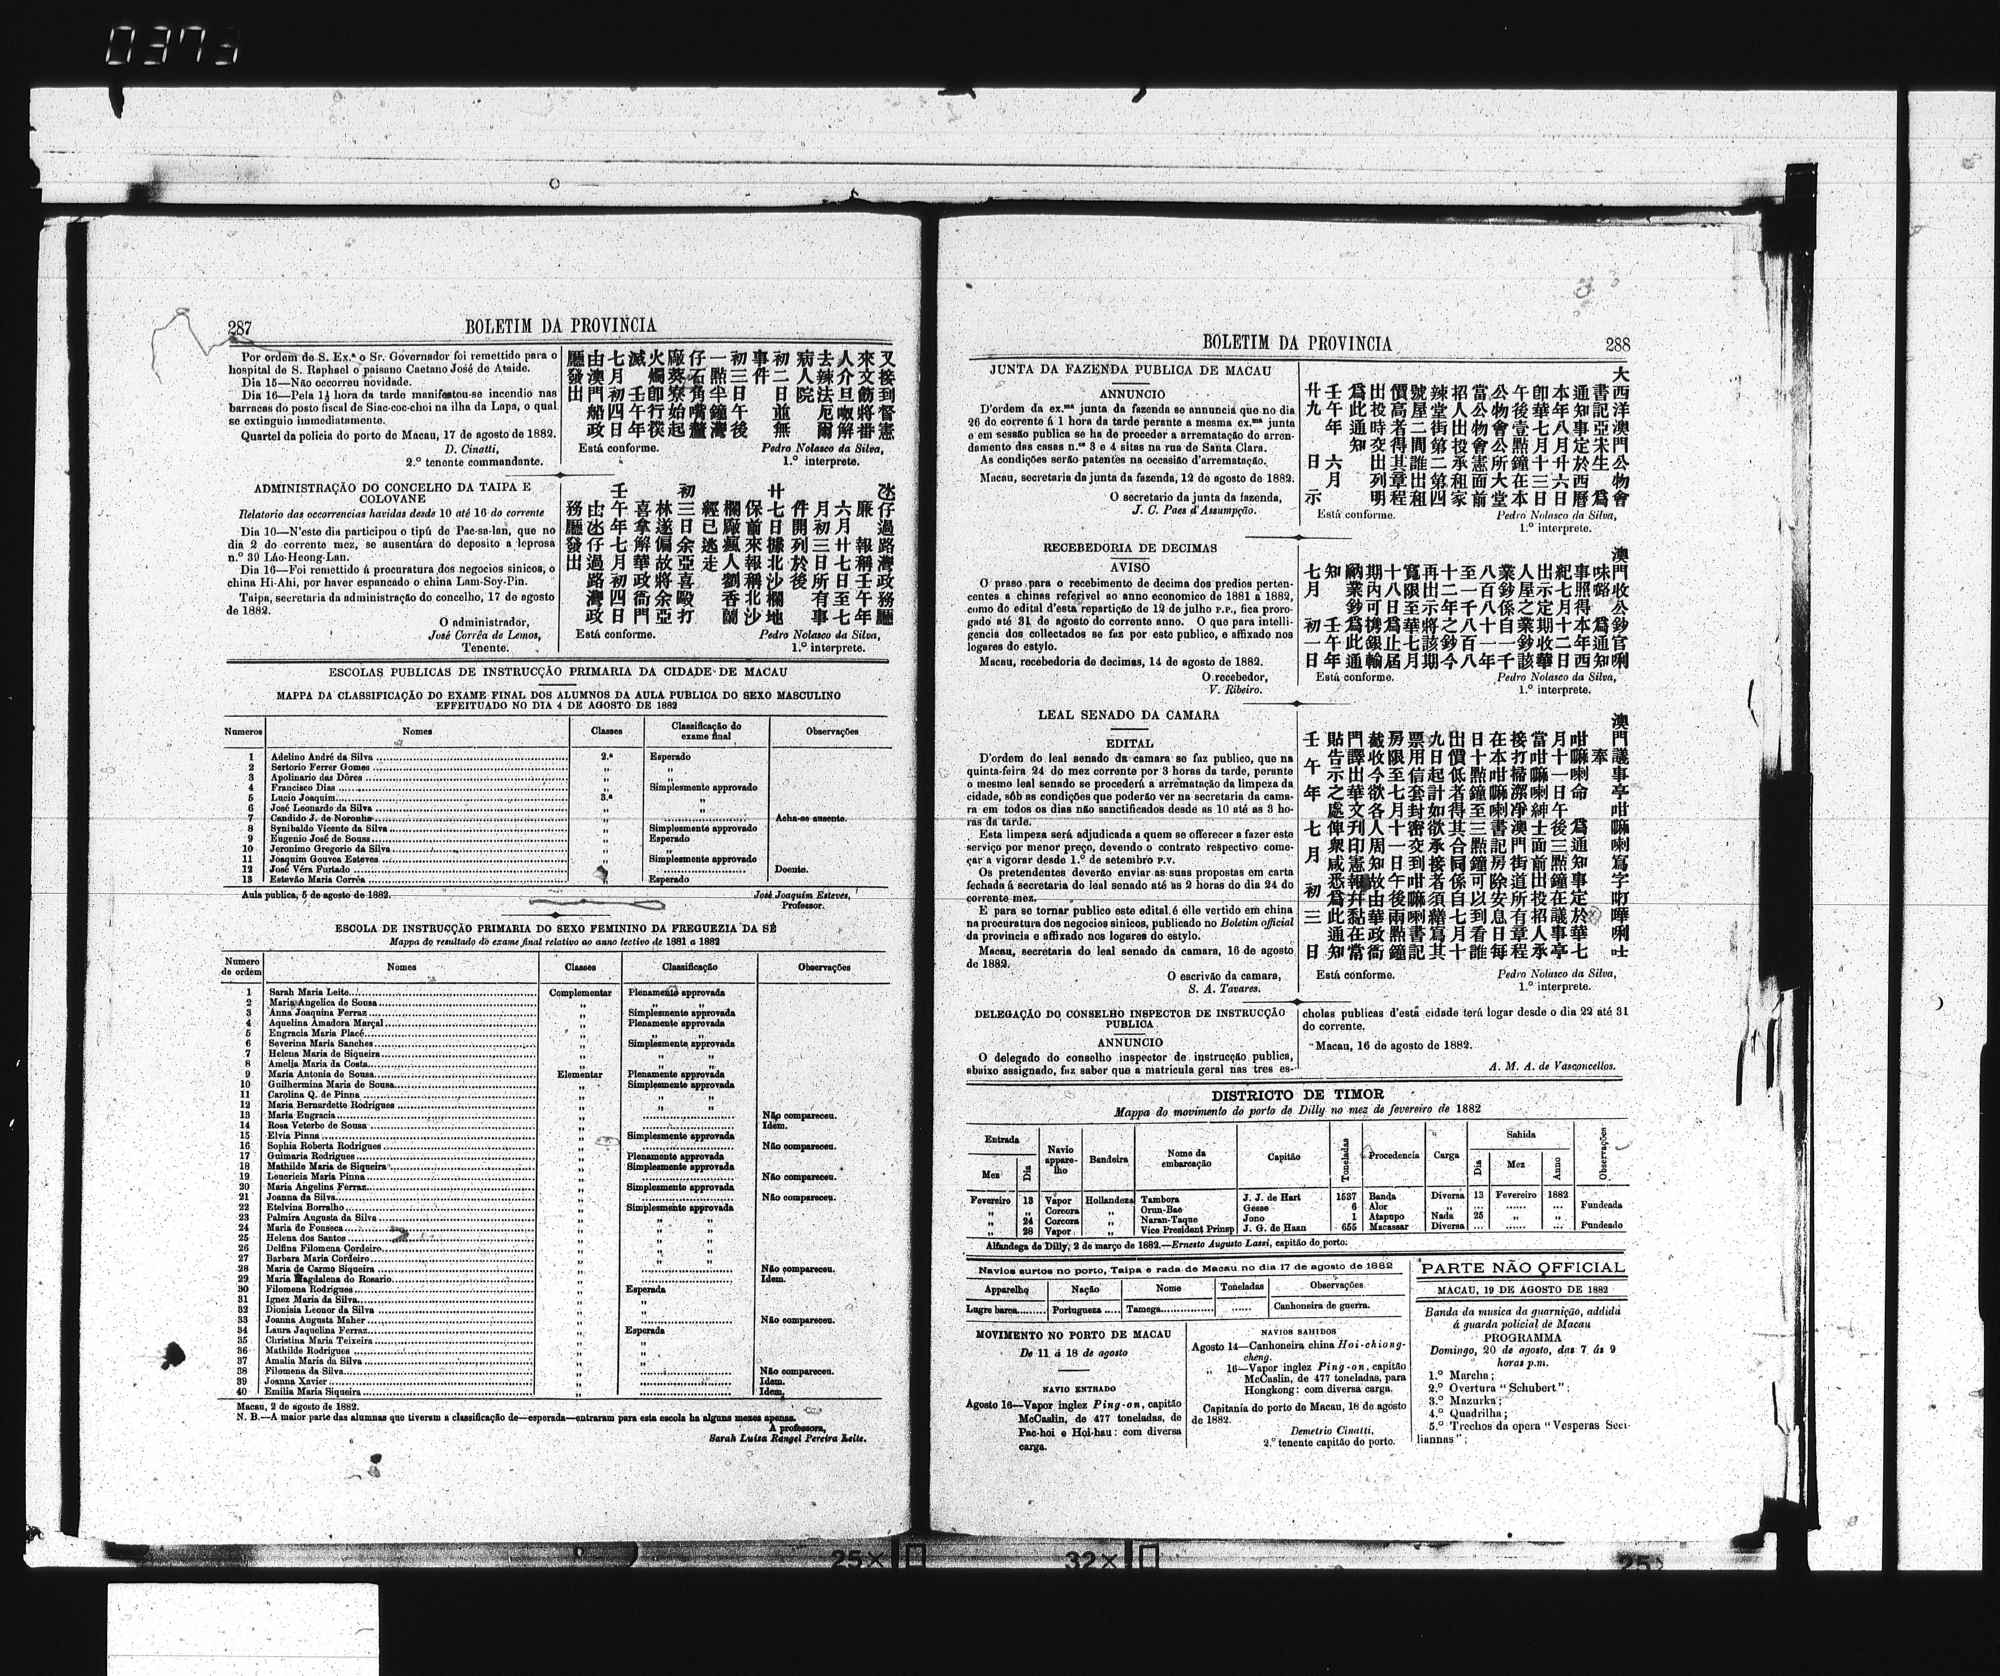 287
BOLETIM DA PROVINCIA
Por ordem de S. Ex.ª o Sr. Governador foi remettido para o
hospital de S. Raphael o paisano Caetano José de Ataide.
Dia 15—Não occorreu novidade.
Dia 16—Pela 1½ hora da tarde manifestou-se incendio nas
barracas do posto fiscal de Siac-coc-choi na ilha da Lapa, o qual
se extinguio immediatamente.
Quartel da policia do porto de Macau, 17 de agosto de 1882.
D. Cinatti,
2.º tenente commandante.
又接到督憲
來文飭將番
人介旦呶解
去辣法厄爾
病人院
初二日並無
事件
初三日午後
一點半鐘灣
仔石角嘴釐
廠葵寮始起
火燭卽行撲
滅 壬午年
七月初四日
由澳門船政
廳發出
Está conforme.
Pedro Nolasco da Silva,
1.º interprete.
ADMINISTRAÇÃO DO CONCELHO DA TAIPA E
COLOVANE
Relatorio das occorrencias havidas desde 10 até 16 do corrente
Dia 10—N'este dia participou o tipú de Pac-sa-lan, que no
dia 2 do corrente mez, se ausentára do deposito a leprosa
n.º 39 Láo-Heong-Lan.
Dia 16—Foi remettido á procuratura dos negocios sinicos, o
china Hi-Ahi, por haver espancado o china Lam-Soy-Pin.
Taipa, secretaria da administração do concelho, 17 de agosto
de 1882.
O administrador,
José Corrêa de Lemos,
Tenente.
氹仔過路灣政務廳
廉 報稱壬午年
六月廿七日至七
月初三日所有事
件開列於後
廿七日據北沙欄地
保前來報稱北沙
欄廠瘋人劉香蘭
經已逃走
初三日余亞喜毆打
林遂偏故將余亞
喜拿解華政衙門
壬午年七月初四日
由氹仔過路灣政
務廳發出
Está conforme.
Pedro Nolasco da Silva,
1.º interprete.
ESCOLAS PUBLICAS DE INSTRUCÇÃO PRIMARIA DA CIDADE DE MACAU
MAPPA DA CLASSIFICAÇÃO DO EXAME FINAL DOS ALUMNOS DA AULA PUBLICA DO SEXO MASCULINO
EFFEITUADO NO DIA 4 DE AGOSTO DE 1882
Numeros Nomes Classes Classificação do exame final Observações
1 Adelino André da Silva 2.ª Esperado
2 Sertorio Ferrer Gomes " "
3 Apolinario das Dôres " "
4 Francisco Dias " Simplesmente approvado
5 Lucio Joaquim 3.ª "
6 José Leonardo da Silva " "
7 Candido J. de Noronha " Acha-se ausente.
8 Synibaldo Vicente da Silva " Simplesmente approvado
9 Eugenio José de Sousa " Esperado
10 Jeronimo Gregorio da Silva " "
11 Joaquim Gouvea Esteves " Simplesmente approvado
12 José Véra Furtado Doente.
13 Estevão Maria Corrêa " Esperado
Aula publica, 5 de agosto de 1882.
José Joaquim Esteves,
Professor.
ESCOLA DE INSTRUCÇÃO PRIMARIA DO SEXO FEMININO DA FREGUEZIA DA SÉ
Mappa do resultado do exame final relativo ao anno lectivo de 1881 a 1882
Numero de ordem Nomes Classes Classificação Observações
1 Sarah Maria Leite Complementar Plenamente approvada
2 Maria Angelica de Sousa " " "
3 Anna Joaquina Ferraz " Simplesmente approvada
4 Aquelina Amadora Marçal " Plenamente approvada
5 Engracia Maria Placé " " "
6 Severina Maria Sanches " Simplesmente approvada
7 Helena Maria de Siqueira " " "
8 Amelia Maria da Costa " " "
9 Maria Antonia de Sousa Elementar Plenamente approvada
10 Guilhermina Maria de Sousa " Simplesmente approvada
11 Carolina Q. de Pinna " " "
12 Maria Bernardette Rodrigues " " "
13 Maria Engracia " Não compareceu.
14 Rosa Veterbo de Sousa " Idem.
15 Elvia Pinna " Simplesmente approvada
16 Sophia Roberta Rodrigues " Não compareceu.
17 Guimaria Rodrigues " Plenamente approvada
18 Mathilde Maria de Siqueira " Simplesmente approvada
19 Leucricia Maria Pinna " Não compareceu.
20 Maria Angelina Ferraz " Simplesmente approvada
21 Joanna da Silva " Não compareceu.
22 Etelvina Borralho " Simplesmente approvada
23 Palmira Augusta da Silva " " "
24 Maria de Fonseca " " "
25 Helena dos Santos " " "
26 Delfina Filomena Cordeiro " " "
27 Barbara Maria Cordeiro " " "
28 Maria de Carmo Siqueira " Não compareceu.
29 Maria Magdalena do Rosario " Idem.
30 Filomena Rodrigues " Esperada
31 Ignez Maria da Silva " "
32 Dionisia Leonor da Silva " "
33 Joanna Augusta Maher " Não compareceu.
34 Laura Jaquelina Ferraz " Esperada
35 Christina Maria Teixeira " "
36 Mathilde Rodrigues " "
37 Amalia Maria da Silva " "
38 Filomena da Silva " Não compareceu.
39 Joanna Xavier " Idem.
40 Emilia Maria Siqueira " Idem.
Macau, 2 de agosto de 1882.
N. B.—A maior parte das alumnas que tiveram a classificação de—esperada—entraram para esta escola ha alguns mezes apenas.
A professora,
Sarah Luiza Rangel Pereira Leite.
BOLETIM DA PROVINCIA
288
JUNTA DA FAZENDA PUBLICA DE MACAU
ANNUNCIO
D'ordem da ex.ma junta da fazenda se annuncia que no dia
26 do corrente á 1 hora da tarde perante a mesma ex.ma junta
e em sessão publica se ha de proceder a arrematação do arren-
damento das casas n.os 3 e 4 sitas na rua de Santa Clara.
As condições serão patentes na occasião d'arrematação.
Macau, secretaria da junta da fazenda, 12 de agosto de 1882.
O secretario da junta da fazenda,
J. C. Paes d'Assumpção.
大西洋澳門公物會
書記亞宋生 爲
通知事定於西曆
本年八月廿六日
卽華七月十三日
午後壹點鐘在本
公物會公所大堂
當公物會憲面前
招人出投承租家
辣堂街第二第四
號屋二間誰出租
價高者得其章程
出投時交出列明
爲此通知
壬午年 六月
廿九 日示
Está conforme.
Pedro Nolasco da Silva,
1.º interprete.
RECEBEDORIA DE DECIMAS
AVISO
O praso para o recebimento de decima dos predios perten-
centes a chinas referivel ao anno economico de 1881 a 1882,
como do edital d'esta repartição de 12 de julho P.P., fica proro-
gado até 31 de agosto do corrente anno. O que para intelli-
gencia dos collectados se faz por este publico, e affixado nos
logares do estylo.
Macau, recebedoria de decimas, 14 de agosto de 1882.
O recebedor,
V. Ribeiro.
澳門收公鈔官唎
味嘥 爲通知
事照得本年西
紀七月十二日
出示定期收華
人屋之業鈔該
業鈔係自一千
八百八十一年
至一千八百八
十二年之鈔今
再出示將該期
寬限至華七月
十八日爲止屆
期內可攜銀輸
納業鈔爲此通
知 壬午年
七月 初一日
Está conforme.
Pedro Nolasco da Silva,
1.º interprete.
LEAL SENADO DA CAMARA
EDITAL
D'ordem do leal senado da camara se faz publico, que na
quinta-feira 24 do mez corrente por 3 horas da tarde, perante
o mesmo leal senado se procederá a arrematação da limpeza da
cidade, sôb as condições que poderão ver na secretaria da cama-
ra em todos os dias não sanctificados desde as 10 até as 3 ho-
ras da tarde.
Esta limpeza será adjudicada a quem se offerecer a fazer este
serviço por menor preço, devendo o contrato respectivo come-
çar a vigorar desde 1.º de setembro P.V.
Os pretendentes deverão enviar as suas propostas em carta
fechada á secretaria do leal senado até as 2 horas do dia 24 do
corrente mez.
E para se tornar publico este edital é elle vertido em china
na procuratura dos negocios sinicos, publicado no Boletim official
da provincia e affixado nos logares do estylo.
Macau, secretaria do leal senado da camara, 16 de agosto
de 1882.
O escrivão da camara,
S. A. Tavares.
澳門議事亭咁嘛喇寫字叮嘩唎士
奉
咁嘛喇命 爲通知事定於華七
月十一日午後三點鐘在議事亭
當咁嘛喇紳士面前出投招人承
接打掃潔凈澳門街道所有章程
在本咁嘛喇書記房除安息日每
日十點鐘至三點鐘可以到看誰
出價低者得其合同係自七月十
九日起計如欲承接者須繕寫其
票用信套封密交到咁嘛喇書記
房限至七月十一日午後兩點鐘
截收今欲各人周知故由華政衙
門譯出華文刋印憲報幷黏在當
貼告示之處俾衆咸悉爲此通知
壬午年 七月 初三 日
Está conforme.
Pedro Nolasco da Silva,
1.º interprete.
DELEGAÇÃO DO CONSELHO INSPECTOR DE INSTRUCÇÃO
PUBLICA
ANNUNCIO
O delegado do conselho inspector de instrucção publica,
abaixo assignado, faz saber que a matricula geral nas tres es-
cholas publicas d'esta cidade terá logar desde o dia 22 até 31
do corrente.
Macau, 16 de agosto de 1882.
A. M. A. de Vasconcellos.
DISTRICTO DE TIMOR
Mappa do movimento do porto de Dilly no mez de fevereiro de 1882
Entrada Navio apparelho Bandeira Nome da embarcação Capitão Toneladas Procedencia Carga Sahida Observações
Mez Dia Dia Mez Anno
Fevereiro 13 Vapor Hollandeza Tambora J. J. de Hart 1537 Banda Diversa 13 Fevereiro 1882
" " Corcora " Orun-Bae Gesse 6 Alor " ... ...... ... Fundeada
" 24 Corcora " Naran-Taque Jono 1 Atapupo Nada 25 " "
" 28 Vapor " Vice President Prinsp J. G. de Haan 655 Macassar Diversa ... ...... ... Fundeado
Alfandega de Dilly, 2 de março de 1882.—Ernesto Augusto Lassi, capitão do porto.
Navios surtos no porto, Taipa e rada de Macau no dia 17 de agosto de 1882
Apparelho Nação Nome Toneladas Observações
Lugre barca Portugueza Tamega ...... Canhoneira de guerra.
MOVIMENTO NO PORTO DE MACAU
De 11 á 18 de agosto
NAVIO ENTRADO
Agosto 16—Vapor inglez Ping-on, capitão
McCaslin, de 477 toneladas, de
Pac-hoi e Hoi-hau: com diversa
carga.
NAVIOS SAHIDOS
Agosto 14—Canhoneira china Hoi-chiong-
cheng.
" 16—Vapor inglez Ping-on, capitão
McCaslin, de 477 toneladas, para
Hongkong: com diversa carga.
Capitania do porto de Macau, 18 de agosto
de 1882.
Demetrio Cinatti,
2.º tenente capitão do porto.
PARTE NÃO OFFICIAL
MACAU, 19 DE AGOSTO DE 1882
Banda da musica da guarnição, addida
á guarda policial de Macau
PROGRAMMA
Domingo, 20 de agosto, das 7 ás 9
horas p.m.
1.º Marcha;
2.º Overtura "Schubert";
3.º Mazurka;
4.º Quadrilha;
5.º Trechos da opera "Vesperas Seci-
liannas";
25×
32×